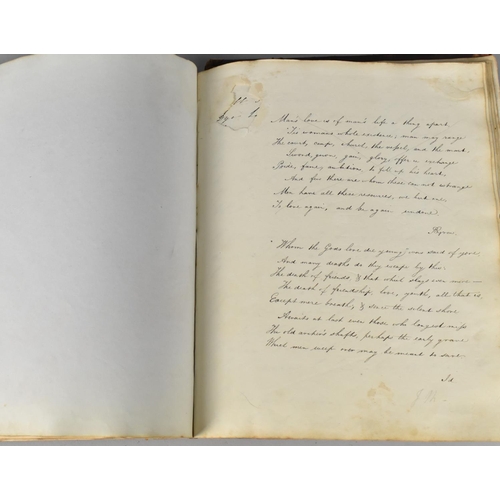 Man's love is of man's life a thing apart,
'Tis woman's whole existence; man may range
The court, camp, church, the vessel, and the mart.
Sword, gown, gain, glory, offer in exchange
Pride, fame, ambition, to fill up his heart,
And few there are whom these can not estrange
Men have all these resources, we but one.
To love again, and be again undone.
Byron.
"Whom the Gods love die young" was said of yore,
And many deaths do they escape by this:
The death of friends, & that which slays even more—
The death of friendship, love, youth, all that is,
Except mere breath; & since the silent shore
Awaits at last even those who longest miss
The old archer's shafts, perhaps the early grave
Which men weep over may be meant to save.
Id